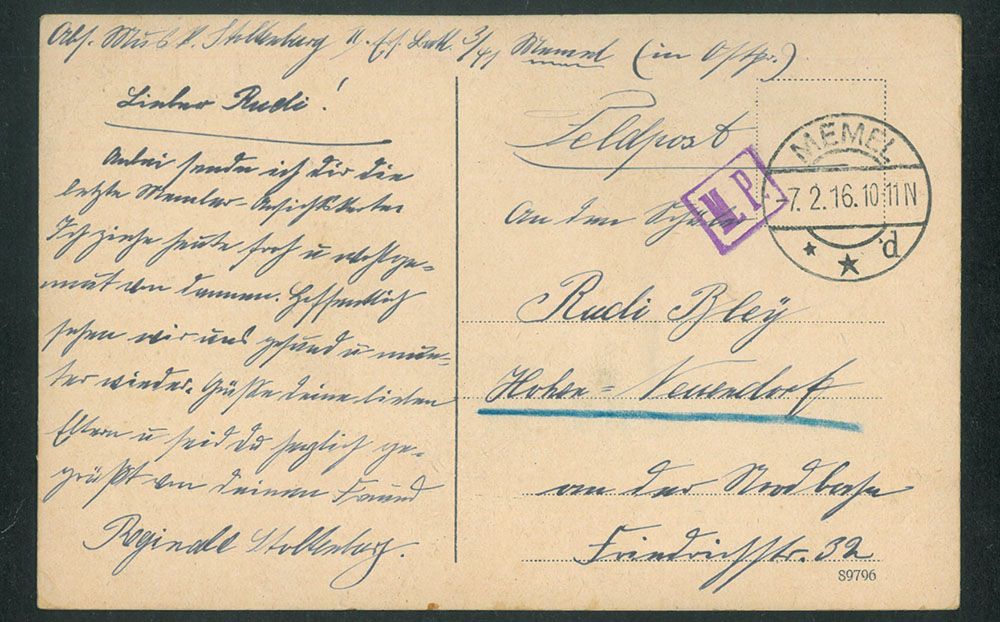 Abs. Musk. Stoltenberg II. Ers. Batl. 3/41 Memel (in Ostpr.)
Lieber Rudi!
Anbei sende ich dir die
letzte Memeler-Ansichtskarte.
Ich ziehe heute froh u wohlge-
mut von dannen. Hoffentlich
sehen wir uns gesund u mun-
ter wieder. Grüße deine lieben
Eltern u seid du herzlich ge-
grüßt von deinem Freund
Reginald Stoltenberg.
Feldpost
M.P.
MEMEL
-7.2.16.10-11N
d
An den Schüler
Rudi Bley
Hohen-Neuendorf
an der Nordbahn
Friedrichstr. 32
89796